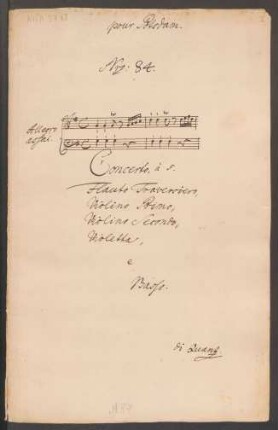 pour Potsdam.
No: 84.
Allegro
assai.
Concerto, à 5.
Flauto Traversiero,
Violino Primo,
Violino Secondo,
Violetta,
e
Basso.
di Quanz.